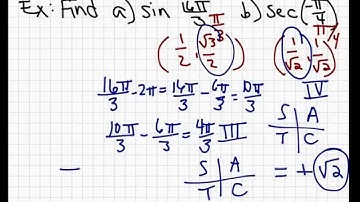 Ex: Find a) sin 16π/3 b) sec(-π/4)
π/3 π/4
(1/2, √3/2) (1/√2, 1/√2)
16π/3 - 2π = 16π/3 - 6π/3 = 10π/3 IV
10π/3 - 6π/3 = 4π/3 III S A
T C
— S A = +√2
T C